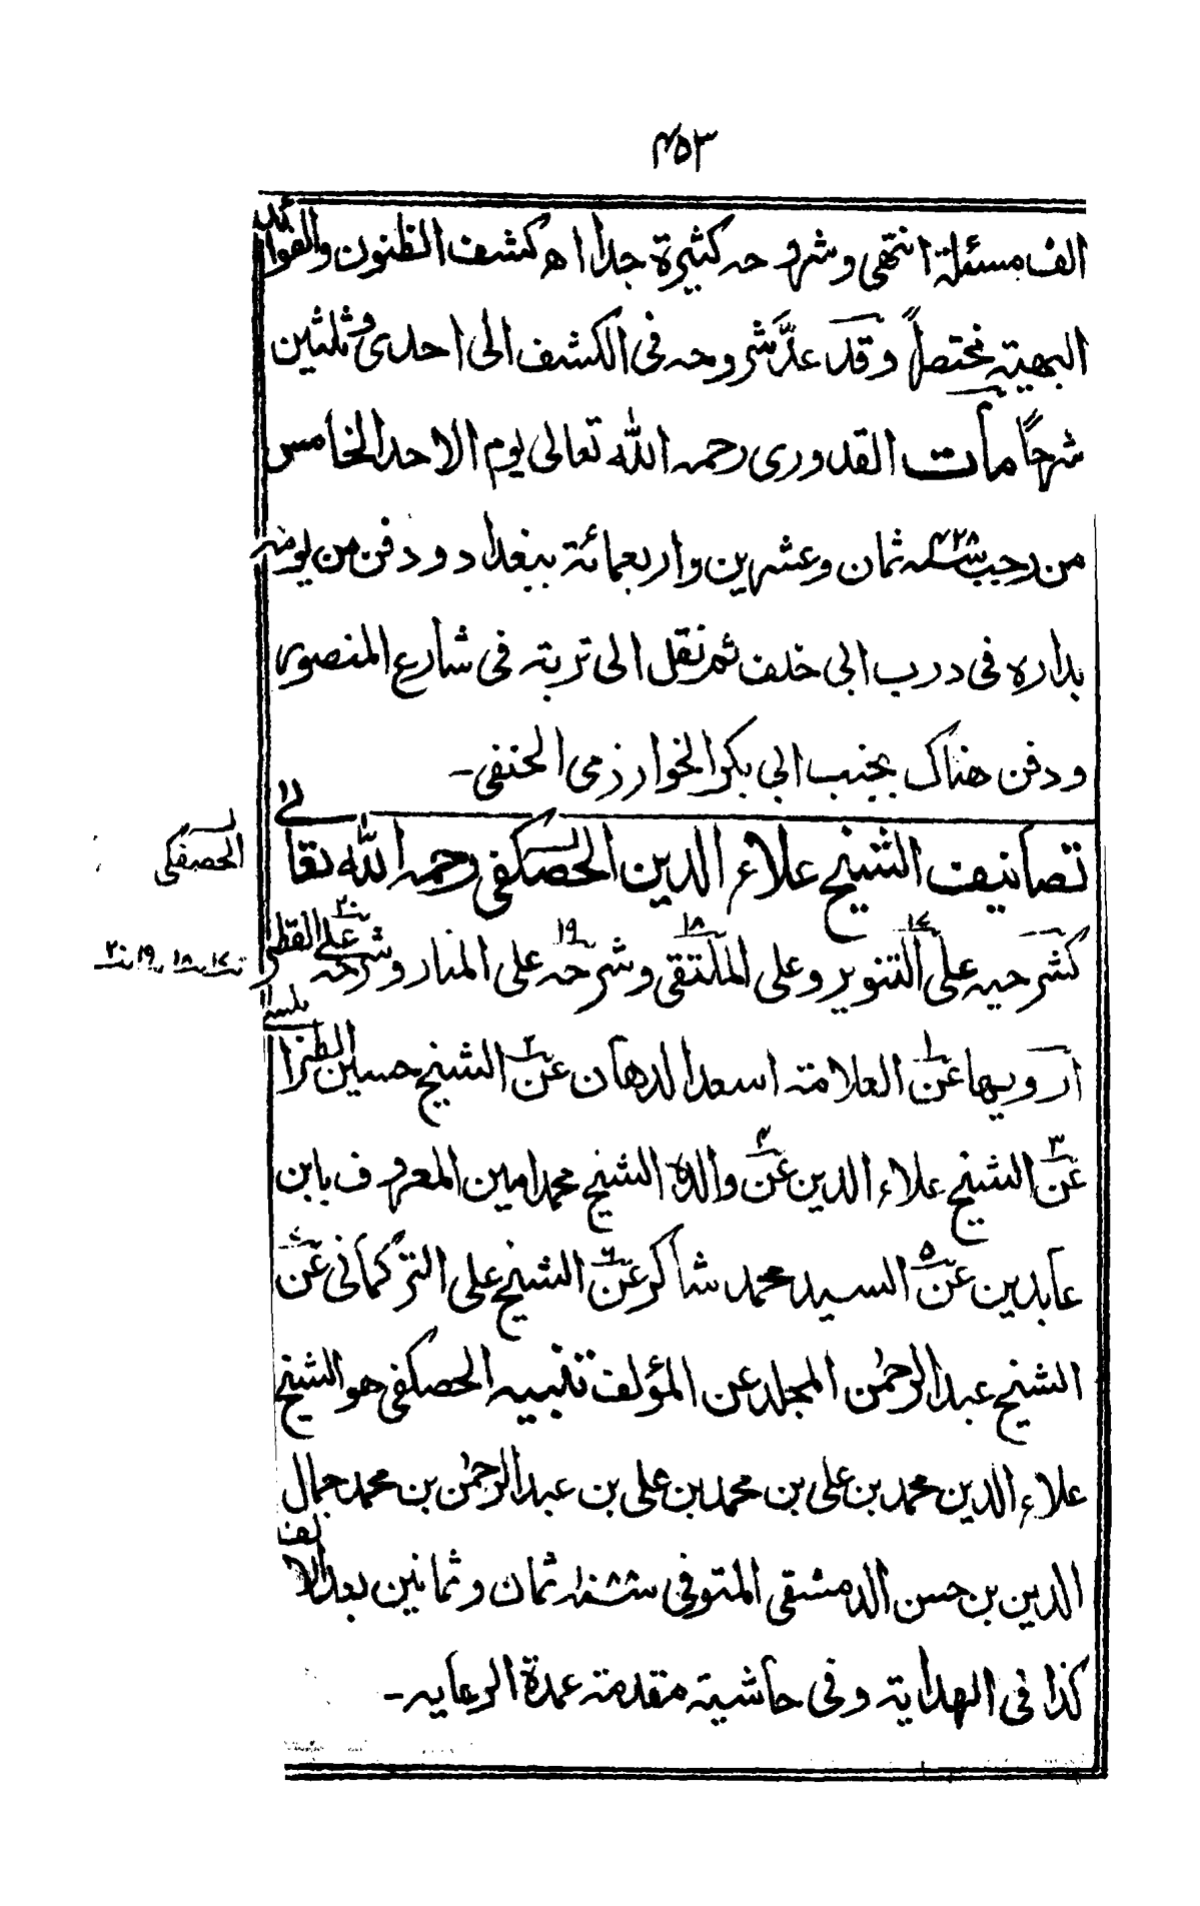 ٤٥٣
الف مسئلة انتهى وشروحه كثيرة جدا اه كشف الظنون والفوائد
البهية مختصرًا وقد عدَّ شروحه فى الكشف الى احدى وثلثين
شرحًا مات القدورى رحمه الله تعالى يوم الاحد الخامس
من رجب سنة ٤٢٨ ثمان وعشرين واربعمائة ببغداد ودفن من يومه
بداره فى درب ابى خلف ثم نقل الى تربته فى شارع المنصور
ودفن هناك بجنب ابى بكر الخوارزمى الحنفى۔
تصانيف الشيخ علاء الدين الحصكفى رحمه الله تعالى
الحصفكى
كشرحيه على التنوير وعلى الملتقى وشرحه على المنار وشرحه على القطر
١٧ ١٨ ١٩ ٢٠
ارويها عن العلامة اسعد الدهان عن الشيخ حسين الطرابلسى
عن الشيخ علاء الدين عن والده الشيخ محمد امين المعروف بابن
عابدين عن السيد محمد شاكر عن الشيخ على التركمانى عن
الشيخ عبد الرحمٰن المجلد عن المؤلف تنبيه الحصكفى هو الشيخ
علاء الدين محمد بن على بن محمد بن على بن عبد الرحمٰن بن محمد جمال
الدين بن حسن الدمشقى المتوفى سنة ثمان وثمانين بعد الالف
كذا فى الهداية وفى حاشية مقدمة عمدة الرعايه۔